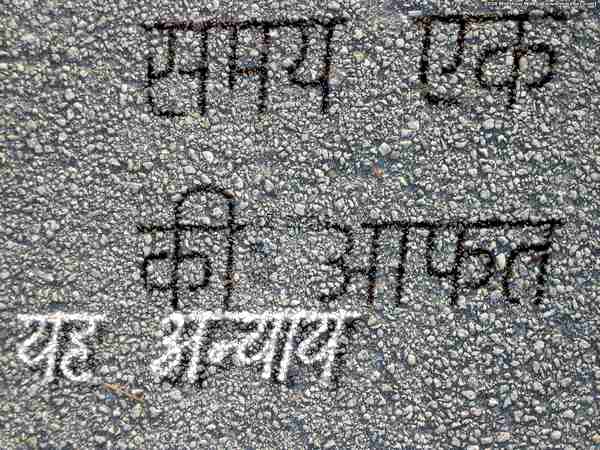 समय एक
की आफत
यह अन्याय